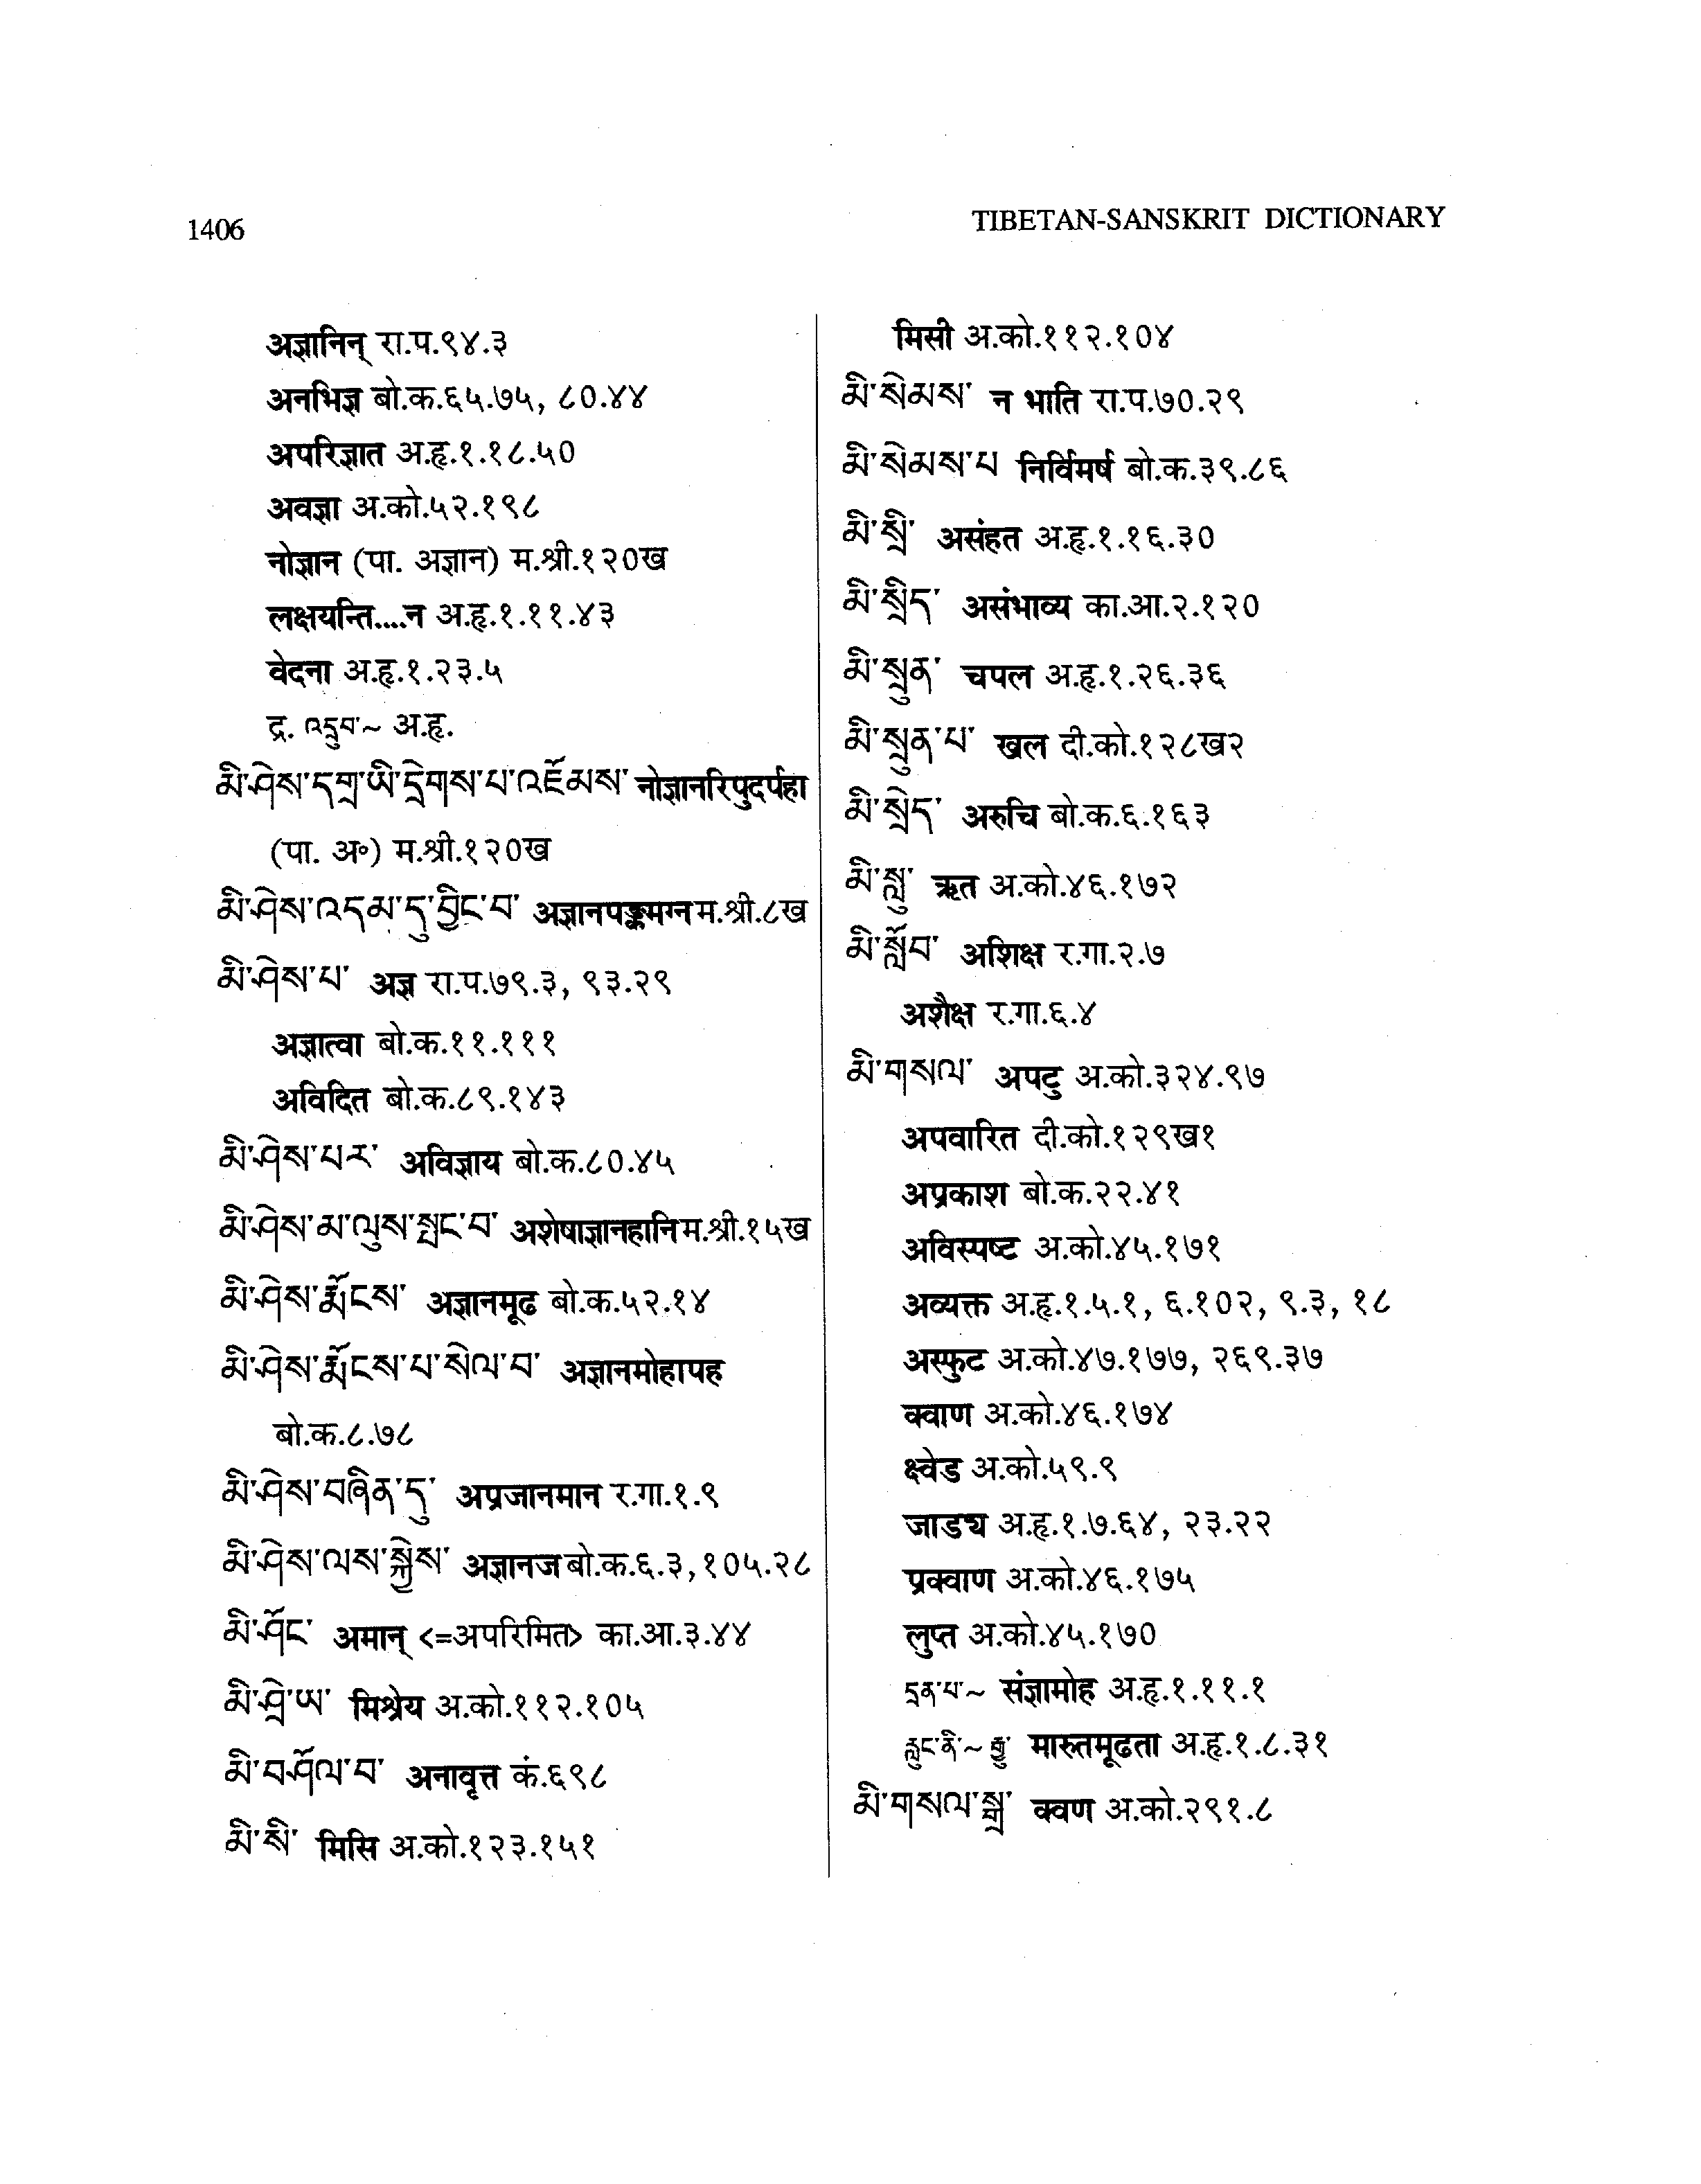 1406
TIBETAN-SANSKRIT DICTIONARY
अज्ञानिन् रा.प.९४.३
अनभिज्ञ बो.क.६५.७५, ८०.४४
अपरिज्ञात अ.हृ.१.१८.५०
अवज्ञा अ.को.५२.१९८
नोज्ञान (पा. अज्ञान) म.श्री.१२०ख
लक्षयन्ति....न अ.हृ.१.११.४३
वेदना अ.हृ.१.२३.५
द्र. འདྲུབ་~ अ.हृ.
མི་ཤེས་དགྲ་ཡི་དྲེགས་པ་འཇོམས་ नोज्ञानरिपुदर्पहा
(पा. अ॰) म.श्री.१२०ख
མི་ཤེས་འདམ་དུ་བྱིང་བ་ अज्ञानपङ्कमग्न म.श्री.८ख
མི་ཤེས་པ་ अज्ञ रा.प.७९.३, ९३.२९
अज्ञात्वा बो.क.११.१११
अविदित बो.क.८९.१४३
མི་ཤེས་པར་ अविज्ञाय बो.क.८०.४५
མི་ཤེས་མ་ལུས་སྤང་བ་ अशेषाज्ञानहानि म.श्री.१५ख
མི་ཤེས་རྨོངས་ अज्ञानमूढ बो.क.५२.१४
མི་ཤེས་རྨོངས་པ་སེལ་བ་ अज्ञानमोहापह
बो.क.८.७८
མི་ཤེས་བཞིན་དུ་ अप्रजानमान र.गा.१.९
མི་ཤེས་ལས་སྐྱེས་ अज्ञानज बो.क.६.३, १०५.२८
མི་ཤོང་ अमान् <=अपरिमित> का.आ.३.४४
མི་ཤྲེ་ཡ་ मिश्रेय अ.को.११२.१०५
མི་བ་ཤོལ་བ་ अनावृत्त कं.६९८
མི་སི་ मिसि अ.को.१२३.१५१
मिसी अ.को.११२.१०४
མི་སེམས་ न भाति रा.प.७०.२९
མི་སེམས་པ निर्विमर्ष बो.क.३९.८६
མི་སྲི་ असंहत अ.हृ.१.१६.३०
མི་སྲིད་ असंभाव्य का.आ.२.१२०
མི་སྲུན་ चपल अ.हृ.१.२६.३६
མི་སྲུན་པ་ खल दी.को.१२८ख२
མི་སྲེད་ अरुचि बो.क.६.१६३
མི་སླུ་ ऋत अ.को.४६.१७२
མི་སློབ་ अशिक्ष र.गा.२.७
अशैक्ष र.गा.६.४
མི་གསལ་ अपटु अ.को.३२४.९७
अपवारित दी.को.१२९ख१
अप्रकाश बो.क.२२.४१
अविस्पष्ट अ.को.४५.१७१
अव्यक्त अ.हृ.१.५.१, ६.१०२, ९.३, १८
अस्फुट अ.को.४७.१७७, २६९.३७
क्वाण अ.को.४६.१७४
क्ष्वेड अ.को.५९.९
जाड्य अ.हृ.१.७.६४, २३.२२
प्रक्वाण अ.को.४६.१७५
लुप्त अ.को.४५.१७०
དྲན་པ་~ संज्ञामोह अ.हृ.१.११.१
རླུང་ནི་~ རྒྱུ་ मारुतमूढता अ.हृ.१.८.३१
མི་གསལ་སྒྲ་ क्वण अ.को.२९१.८